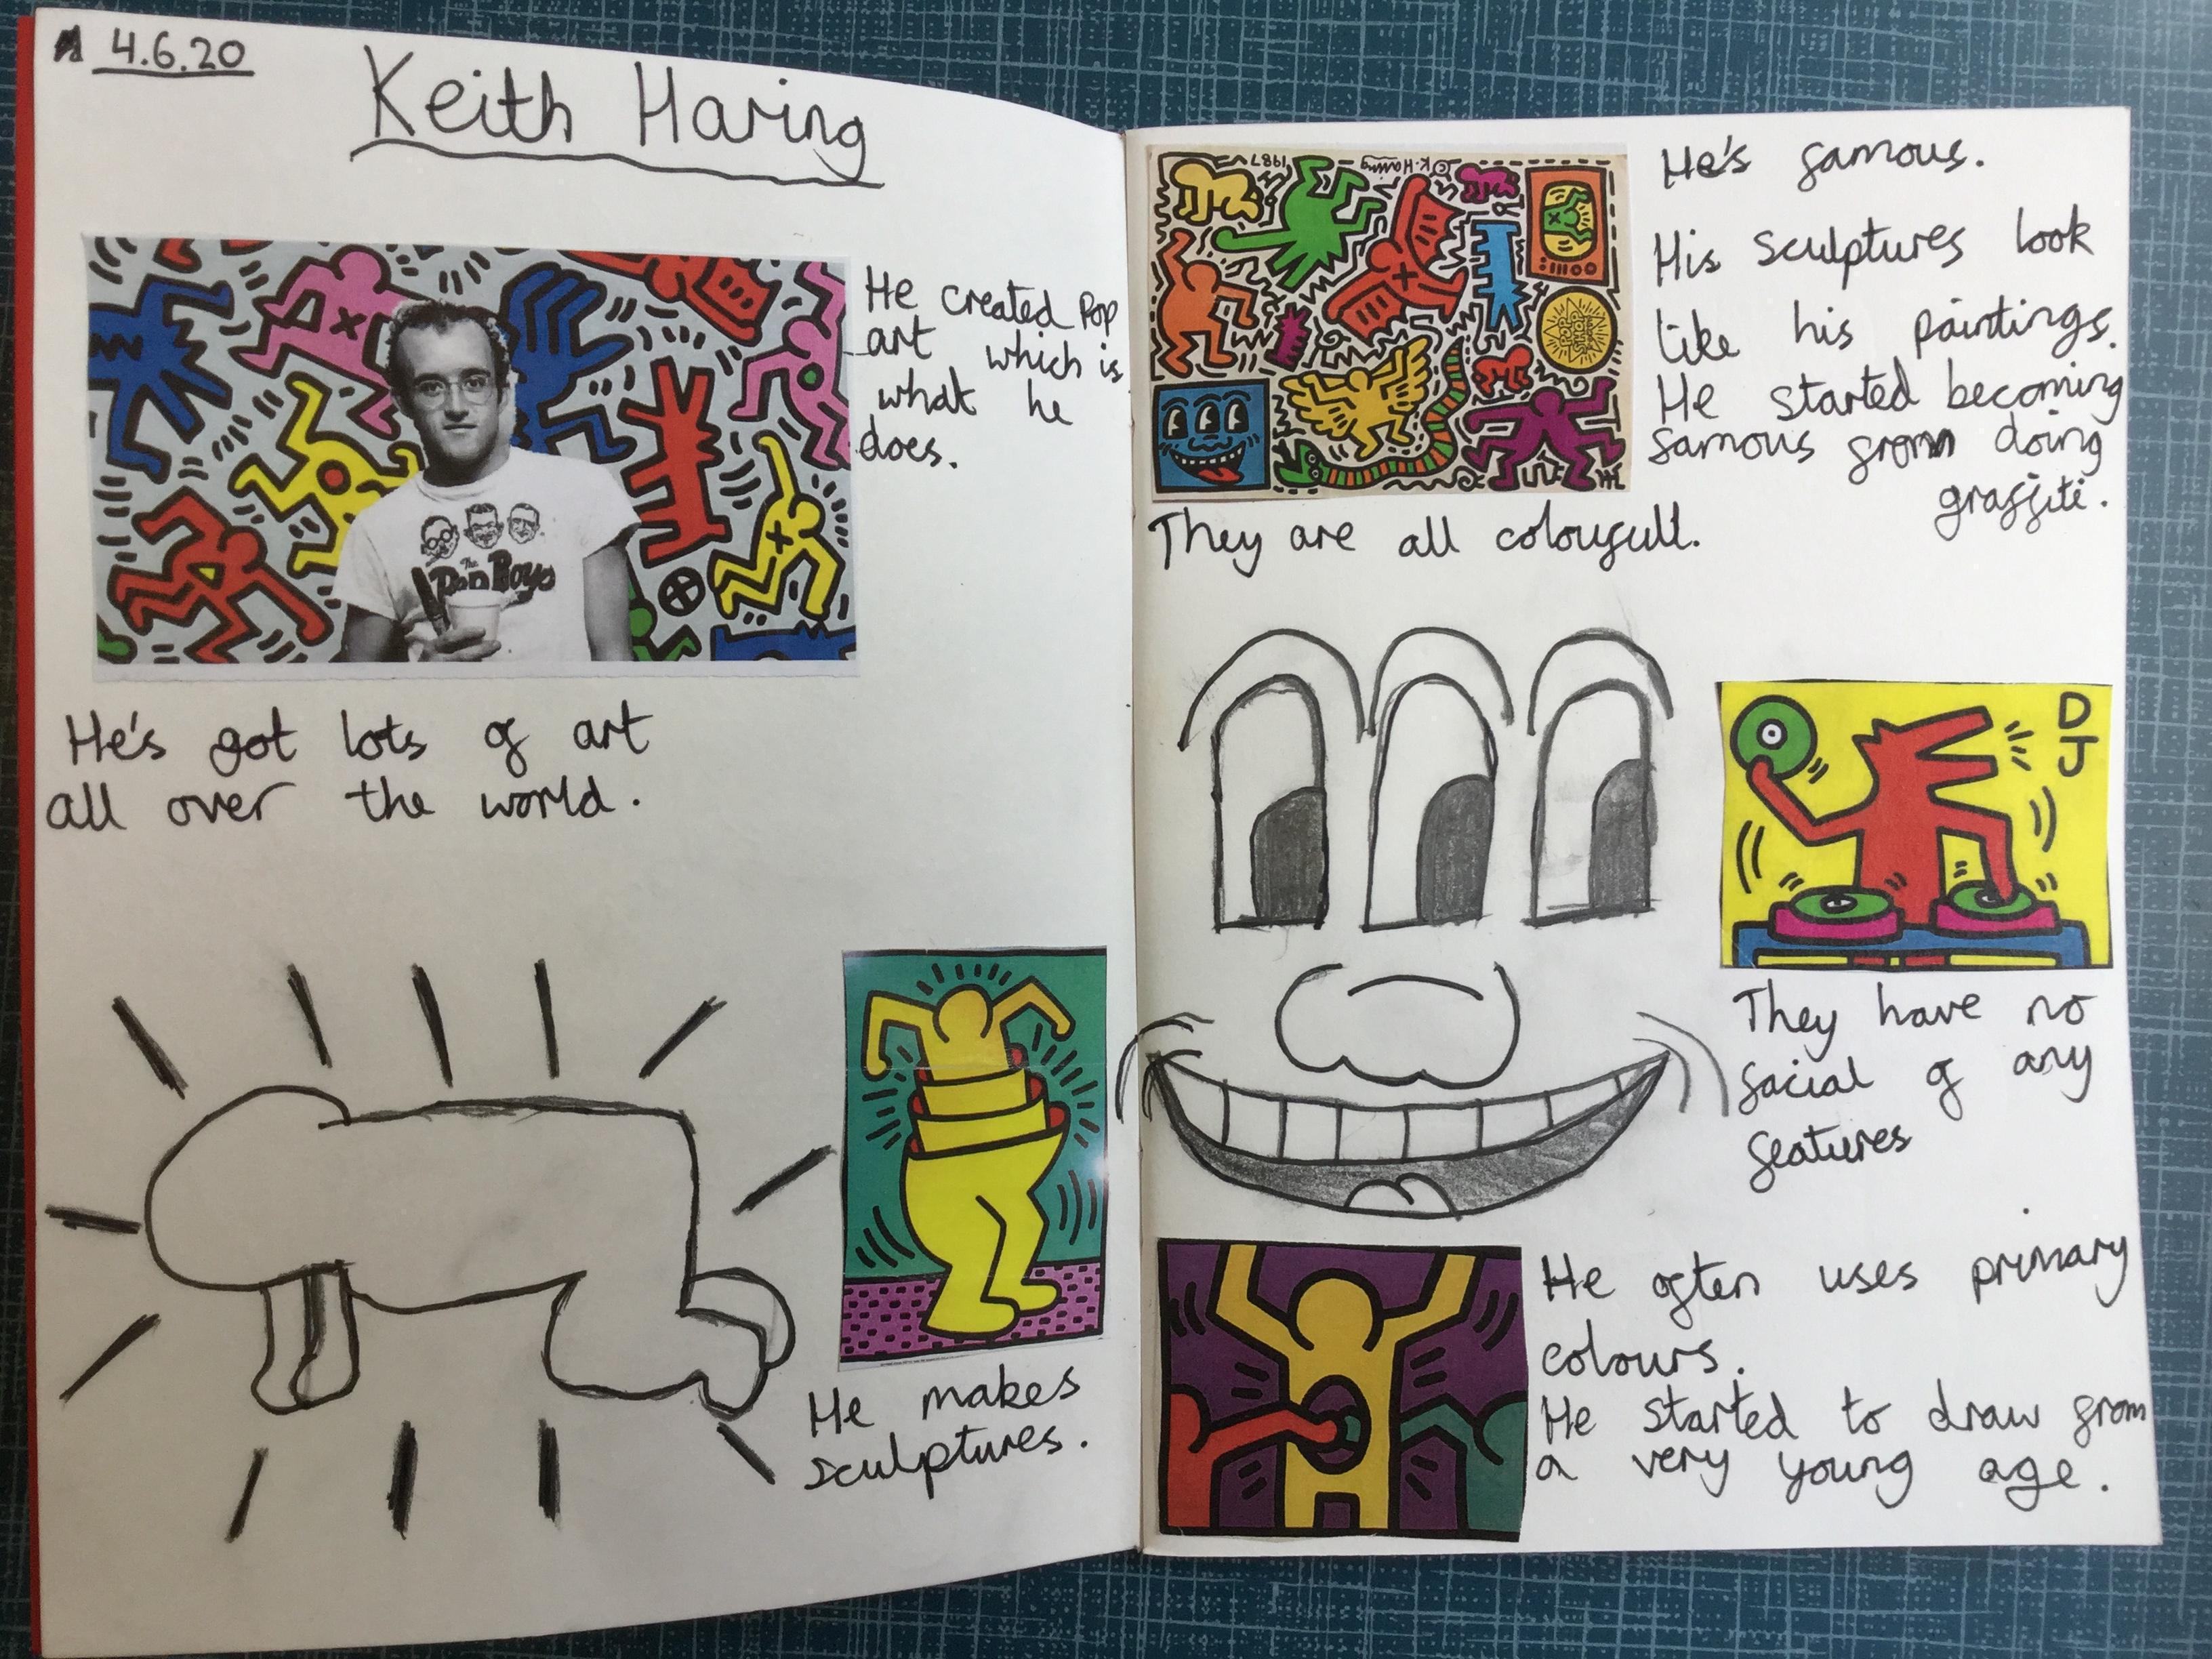 4.6.20
Keith Haring
He created Pop
art which is
what he
does.
The
Pen Boys
He's got lots of art
all over the world.
He makes
sculptures.
1987
© K. Haring
POP
SHOP
He's famous.
His sculptures look
like his paintings.
He started becoming
famous from doing
graffiti.
They are all colourfull.
DJ
They have no
facial of any
features
He often uses primary
colours.
He started to draw from
a very young age.